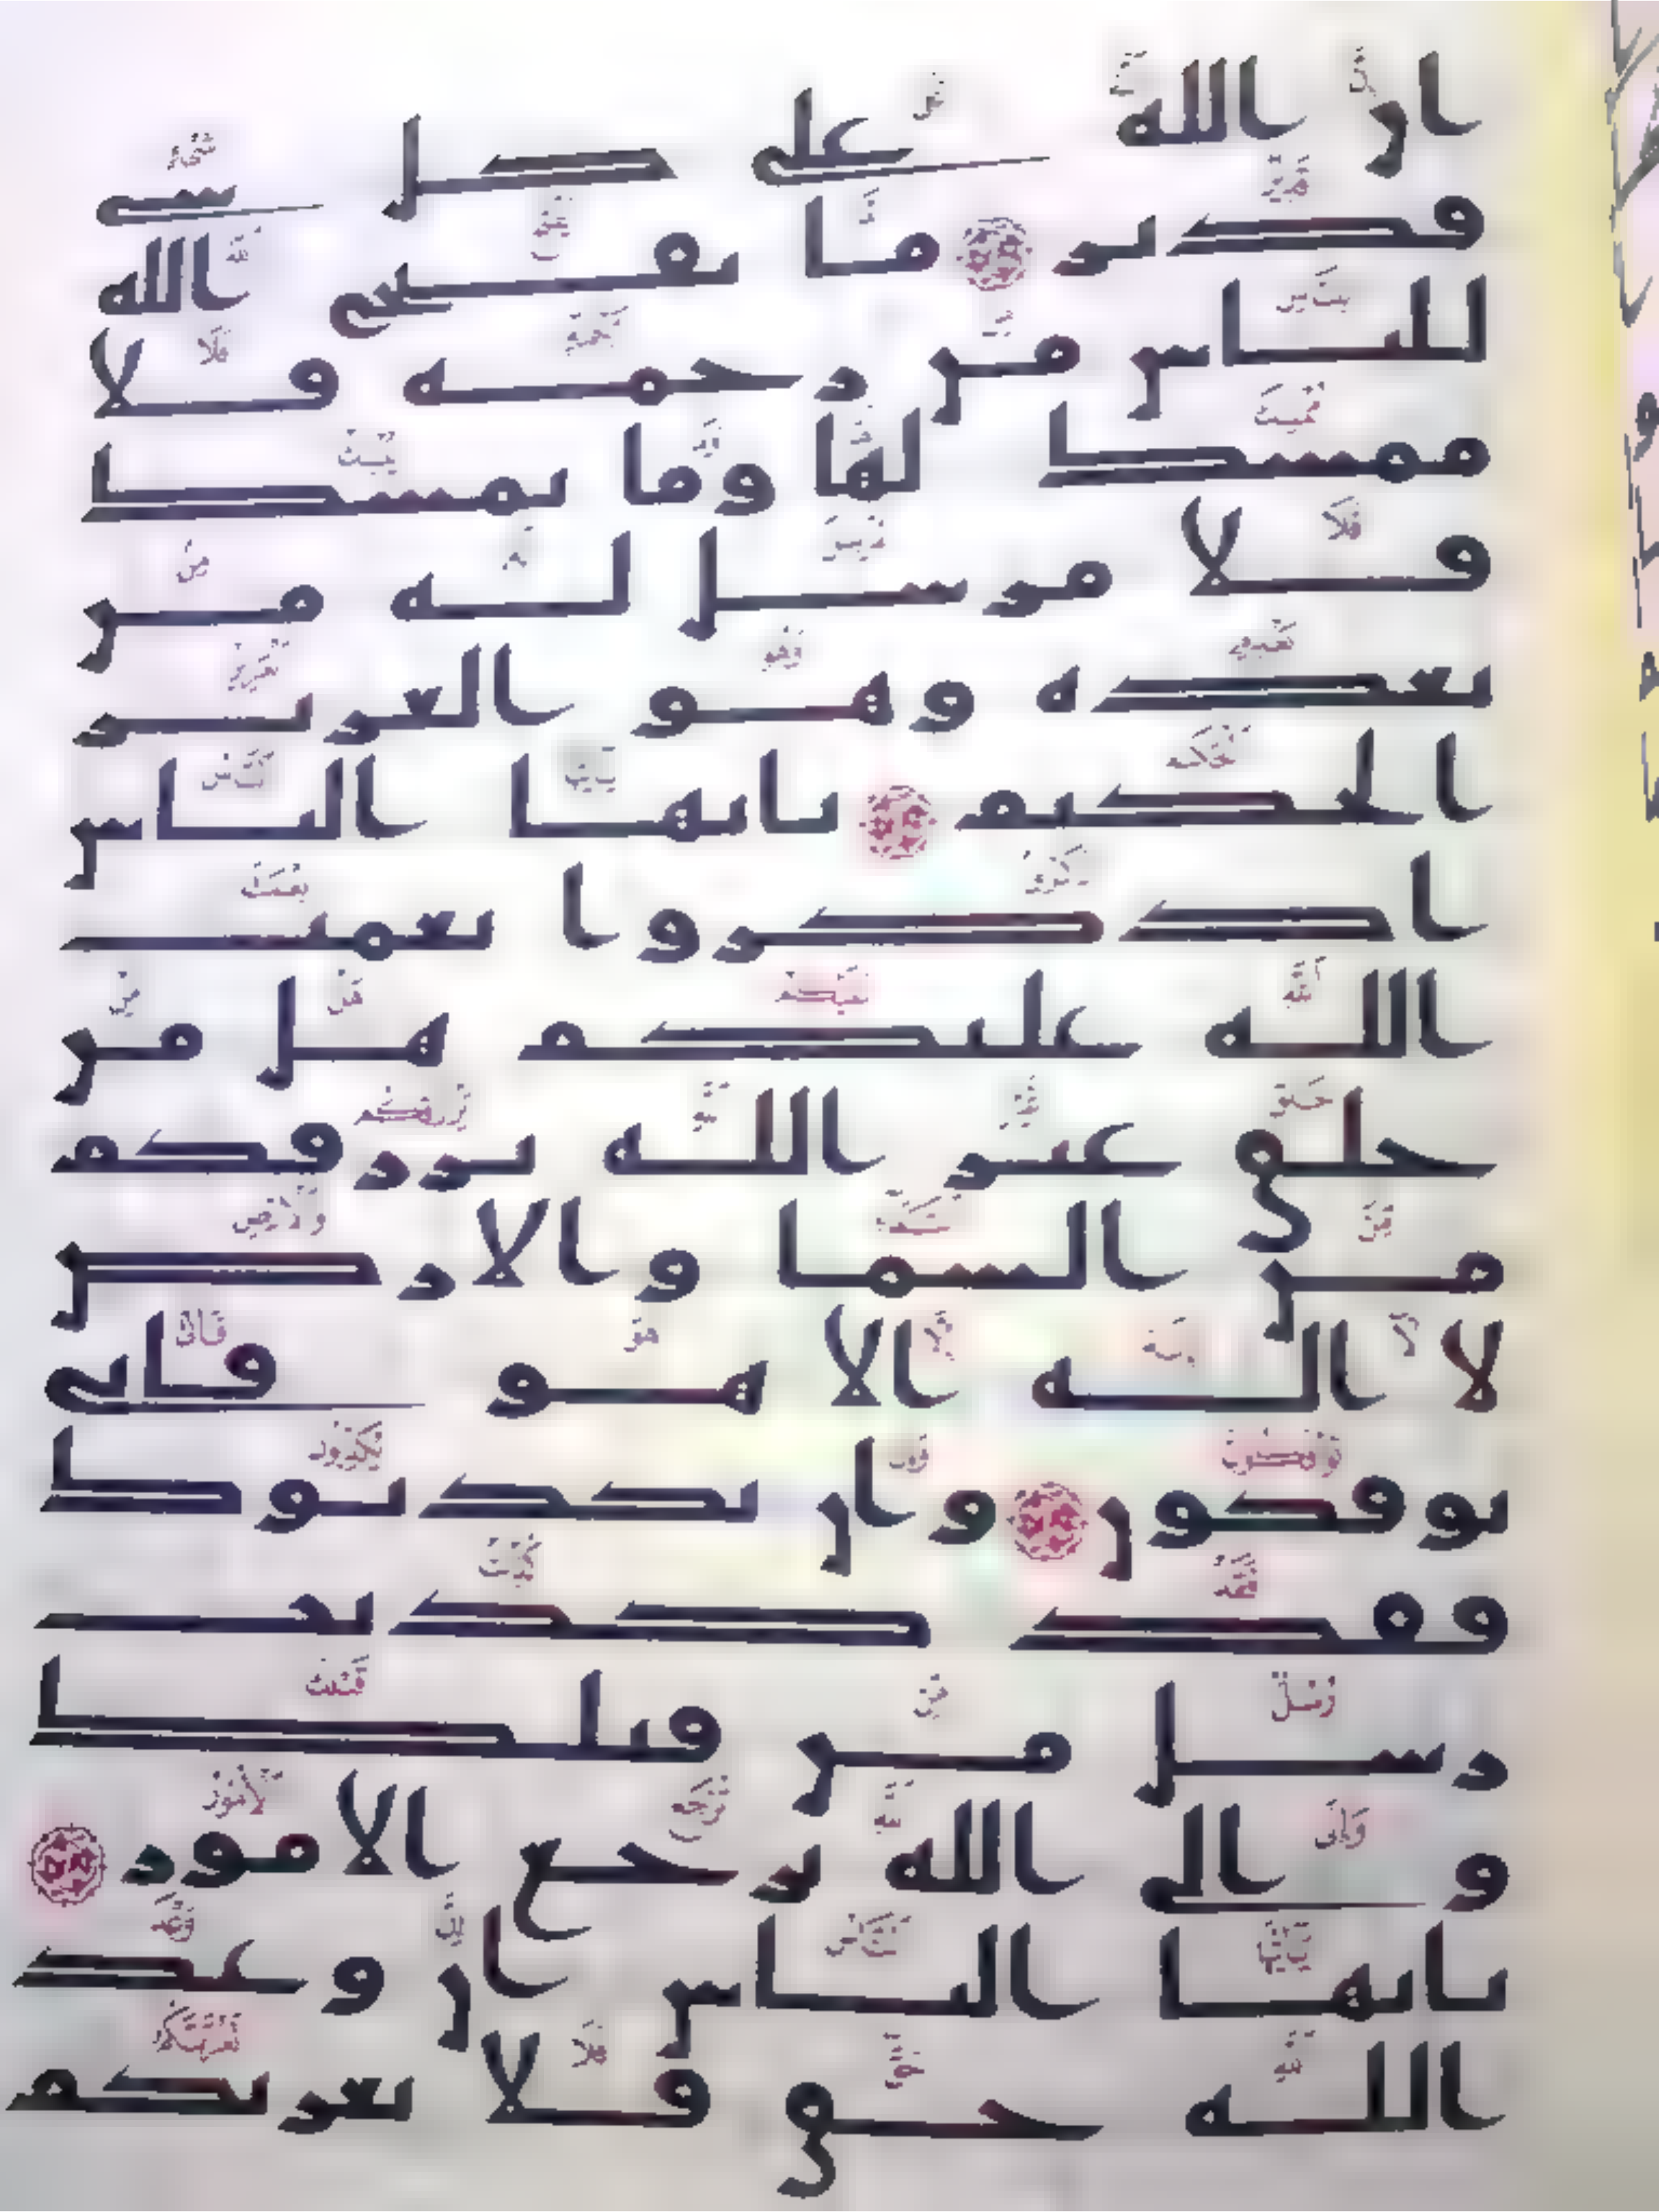 ان الله على كل شى
قدير ما يفتح الله
للناس من رحمة فلا
ممسك لها وما يمسك
فلا مرسل له من
بعده وهو العزيز
الحكيم يايها الناس
اذكروا نعمت
الله عليكم هل من
خلق غير الله يرزقكم
من السما والارض
لا اله الا هو فانى
توفكون وان يكذبوك
فقد كذبت
رسل من قبلك
والى الله ترجع الامور
يايها الناس ان وعد
الله حق فلا تغرنكم